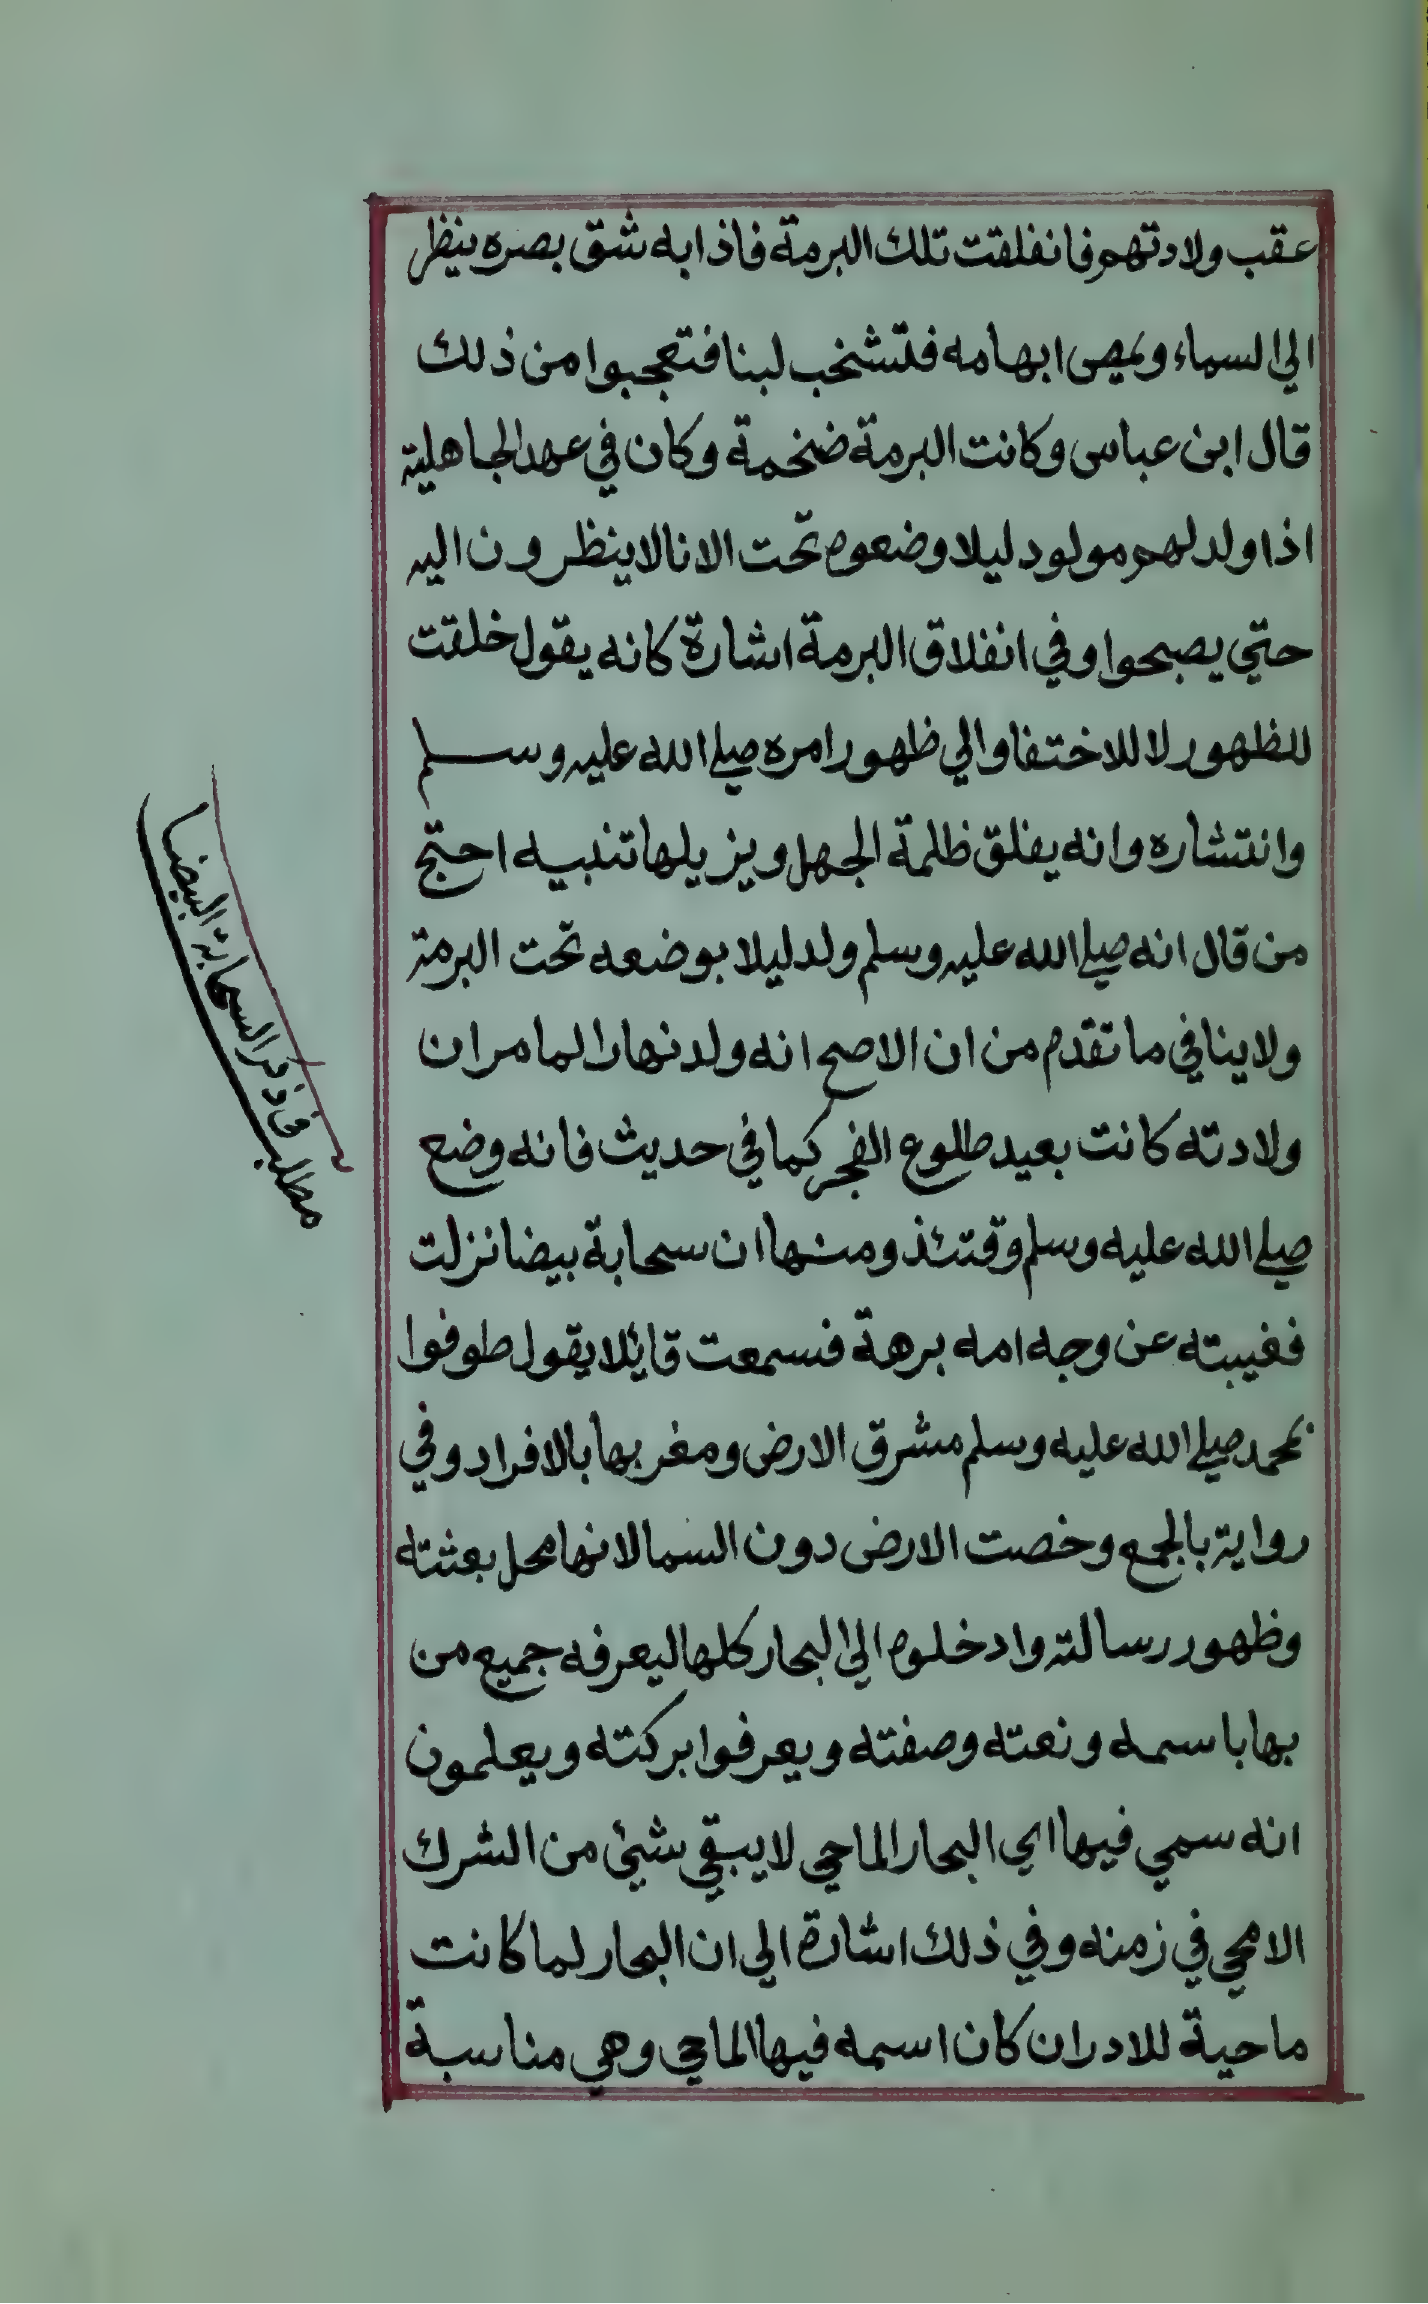 عقب ولادتهم فانفلقت تلك البرمة فاذا به شق بصره ينظر
الي السماء ويمص ابهامه فتشخب لبنا فتعجبوا من ذلك
قال ابن عباس وكانت البرمة ضخمة وكان في عهد الجاهلية
اذا ولد لهم مولود ليلا وضعوه تحت الانا لا ينظرون اليه
حتي يصبحوا وفي انفلاق البرمة اشارة كانه يقول خلقت
للظهور لا للاختفا والي ظهور امره صلي الله عليه وسلم
وانتشاره وانه يفلق ظلمة الجهل ويزيلها تنبيه احتج
من قال انه صلي الله عليه وسلم ولد ليلا بوضعه تحت البرمة
ولا ينافي ما تقدم من ان الاصح انه ولد نهارا لما مر ان
ولادته كانت بعيد طلوع الفجر كما في حديث فانه وضع
صلي الله عليه وسلم وقتئذ ومنها ان سحابة بيضا نزلت
فغيبته عن وجه امه برهة فسمعت قايئلا يقول طوفوا
بمحمد صلي الله عليه وسلم مشرق الارض ومغربها بالافراد وفي
رواية بالجمع وخصت الارض دون السما لانها محل بعثته
وظهور رسالته وادخلوه الي البحار كلها ليعرفه جميع من
بها باسمه ونعته وصفته ويعرفوا بركته ويعلمون
انه سمي فيها اي البحار الماحي لا يبقي شئ من الشرك
الا محي في زمنه وفي ذلك اشارة الي ان البحار لما كانت
ماحية للادران كان اسمه فيها الماحي وهي مناسبة
مطلب في ذكر السحابة البيضا